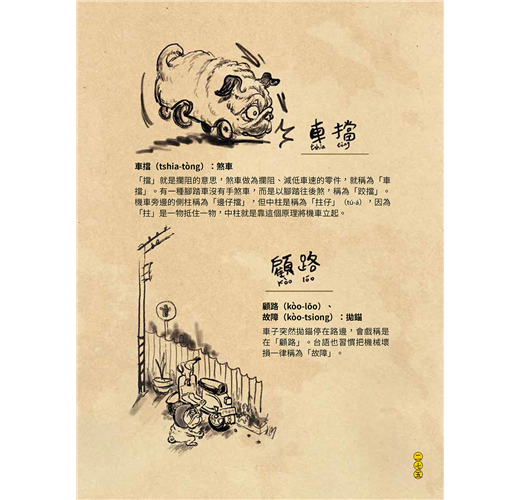 車擋
tshia tòng
車擋（tshia-tòng）：煞車
「擋」就是攔阻的意思，煞車做為攔阻、減低車速的零件，就稱為「車
擋」。有一種腳踏車沒有手煞車，而是以腳踏往後煞，稱為「跤擋」。
機車旁邊的側柱稱為「邊仔擋」，但中柱是稱為「拄仔」（tú-á），因為
「拄」是一物抵住一物，中柱就是靠這個原理將機車立起。
顧路
kòo lōo
顧路（kòo-lōo）、
故障（kòo-tsiong）：拋錨
車子突然拋錨停在路邊，會戲稱是
在「顧路」。台語也習慣把機械壞
損一律稱為「故障」。
二七五